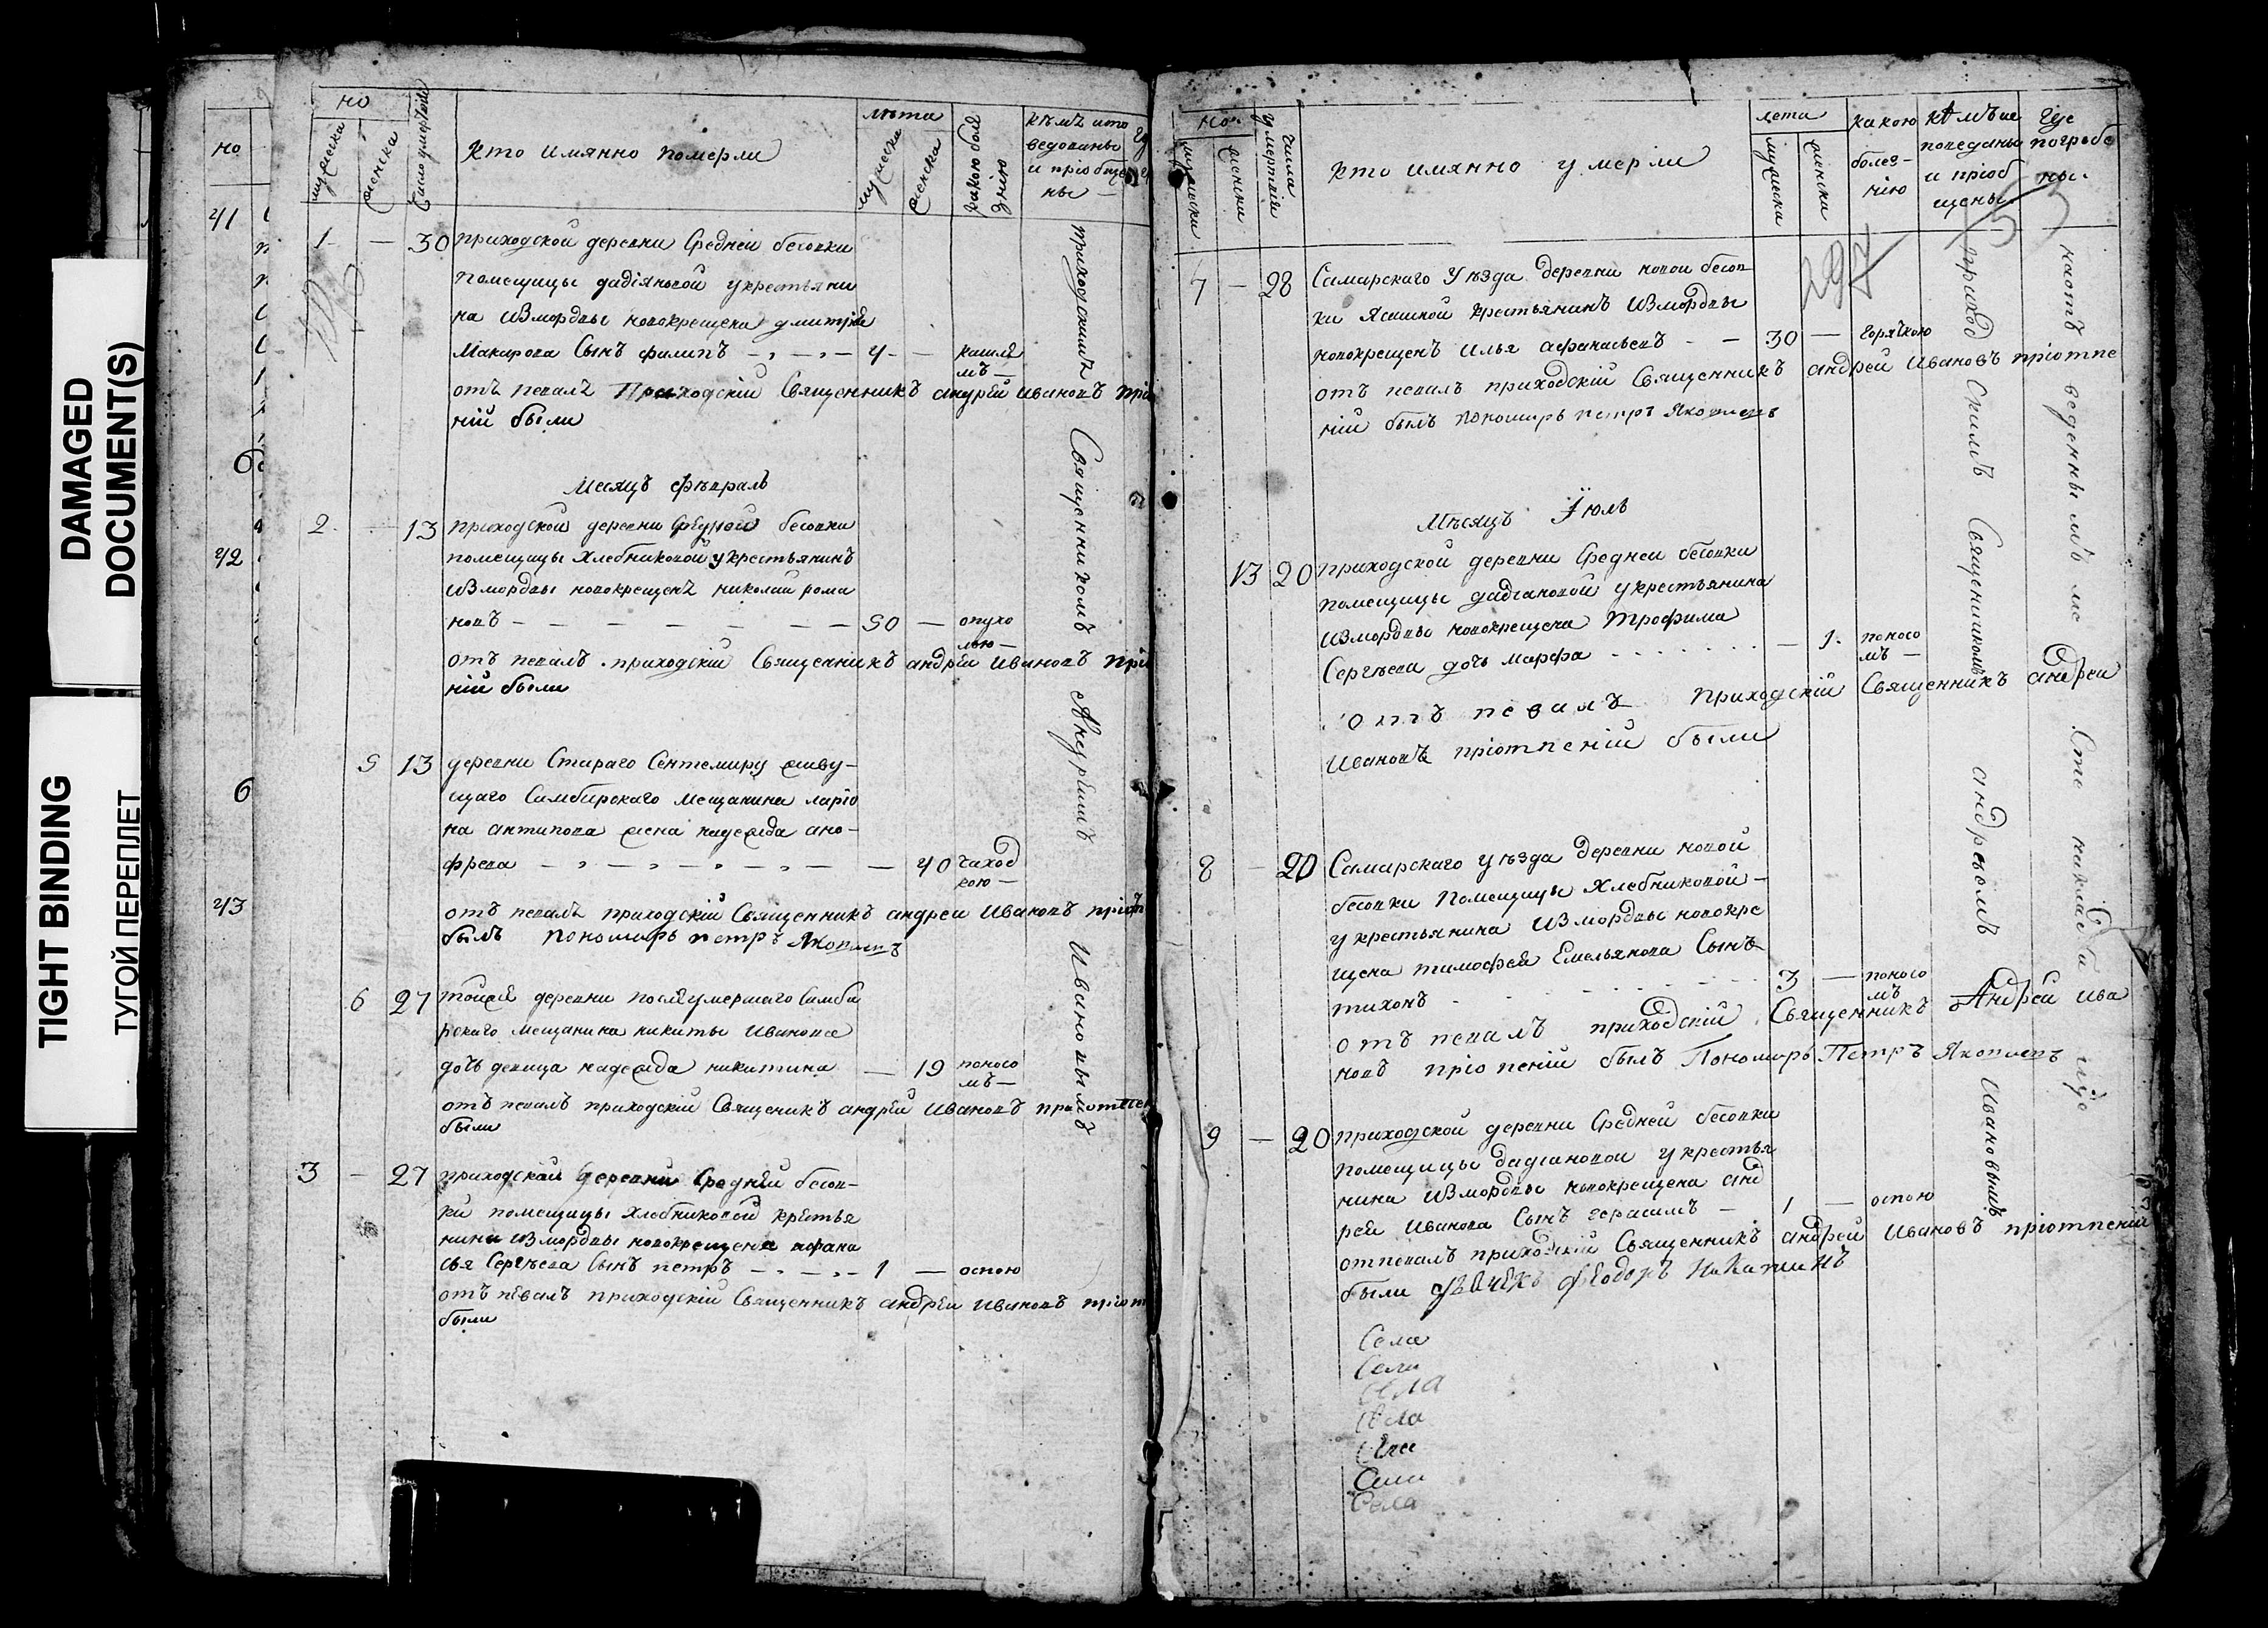 DAMAGED
DOCUMENT(S)
TIGHT BINDING
ТУГОЙ ПЕРЕПЛЕТ
но
41
42
6
43
но
мужеска
женска
Число умертвія
кто имянно померли
лѣта
мужеска
женска
какою боле
знію
кѣмъ испо
ведованы
и пріобще
ны —
1 — 30 приходской деревни Средней бесовки
помещицы дадіяновой у крестьяни
на Измордвы новокрещена дмитрея
Макарова Сынъ филипъ 4 — кашле
мъ —
отъ певалъ Приходскій Священникъ андрей Ивановъ прі
ній были
Месяцъ февраль
2 — 13 приходской деревни Средней бесовки
помещицы Хлебниковой у крестьянинъ
Измордвы новокрещенъ николай рома
новъ — — — — — — 50 — опухо
лью —
отъ певалъ приходскій Священникъ андрей Ивановъ прі
ній были
5 13 деревни Стараго Сентемиру живу-
щаго Симбирскаго Мещанина ларіо
на антипова жена надежда ано-
фрева — — — — — — 40 чаход
кою —
отъ певалъ приходскій Священникъ андрей Ивановъ пріотп
былъ пономарь петръ Яковлевъ
6 27 тойже деревни после умершаго Симби
рскаго мещанина никиты Иванова
дочь девица надежда никитина — 19 поносо
мъ —
отъ певалъ приходскій Священикъ андрей Ивановъ приотпен
были
3 — 27 приходской деревни Средней бесов-
ки помещицы Хлебниковой крестья
нина Измордвы новокрещена афана
сья Сергѣева Сынъ петръ — — 1 — оспою
отъ певалъ приходскій Священникъ андрей Ивановъ пріот
были
приходскимъ Священникомъ Андреемъ Ивановымъ
но
мужески
женски
числа
умертвія
кто имянно умерли
лета
мужеска
женска
какою
болез-
нію
кемъ ис
поведаны
и пріоб
щены
Где
погребе
ны.
297
53
7 — 28 Самарскаго Уѣзда деревни новой бесов
ки Ясашной крестьянинъ Измордвы
новокрещенъ Илья афанасьевъ — — 30 — горячкою
отъ певалъ приходскій Священникъ андрей Ивановъ пріотпе
ній былъ пономарь петръ Яковлевъ
Мѣсяцъ Іюль
13 20 приходской деревни Средней бесовки
помещицы дадіановой у крестьянина
Измордвы новокрещена Трофима
Сергѣева дочь марфа — 1. поносо
мъ —
отъ певалъ приходскій Священникъ андреи
Ивановъ пріотпеній были
8 — 20 Самарскаго уѣзда деревни новой
бесовки Помещицы Хлебниковой —
у крестьянина Измордвы новокре
щена тимофея Емельянова Сынъ
тихонъ 3 — поносо
мъ
отъ певалъ приходскій Священникъ Андрей Ива
новъ пріо пеній былъ Пономарь Петръ Яковлевъ
9 — 20 приходской деревни Средней бесовки
помещицы дадіановой у крестья
нина Измордвы новокрещена анд
рея Иванова Сынъ герасимъ — 1 — оспою
отпевалъ приходскій Священникъ андрей Ивановъ пріотпеній
были Феодоръ Никитинъ
Села
Села
Села
Села
Села
Села
Села
приход скимъ Священникомъ андреомъ Ивановымъ
на отъ веденнымъ ме Сте